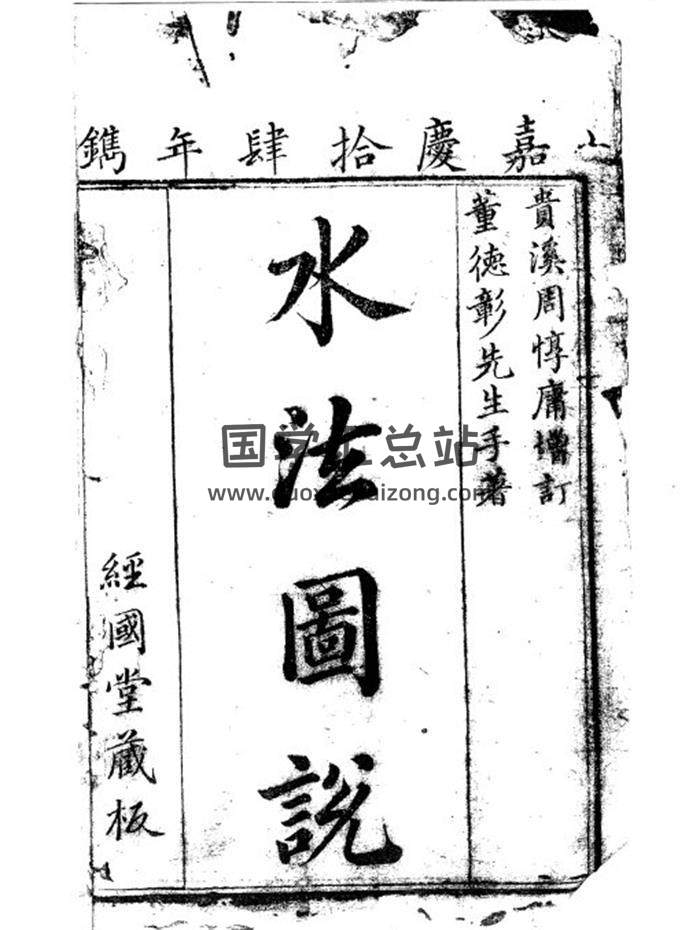 嘉慶拾肆年鐫
貴溪周惇庸增訂
董德彰先生手著
水法圖說
經國堂藏板
国学 总站